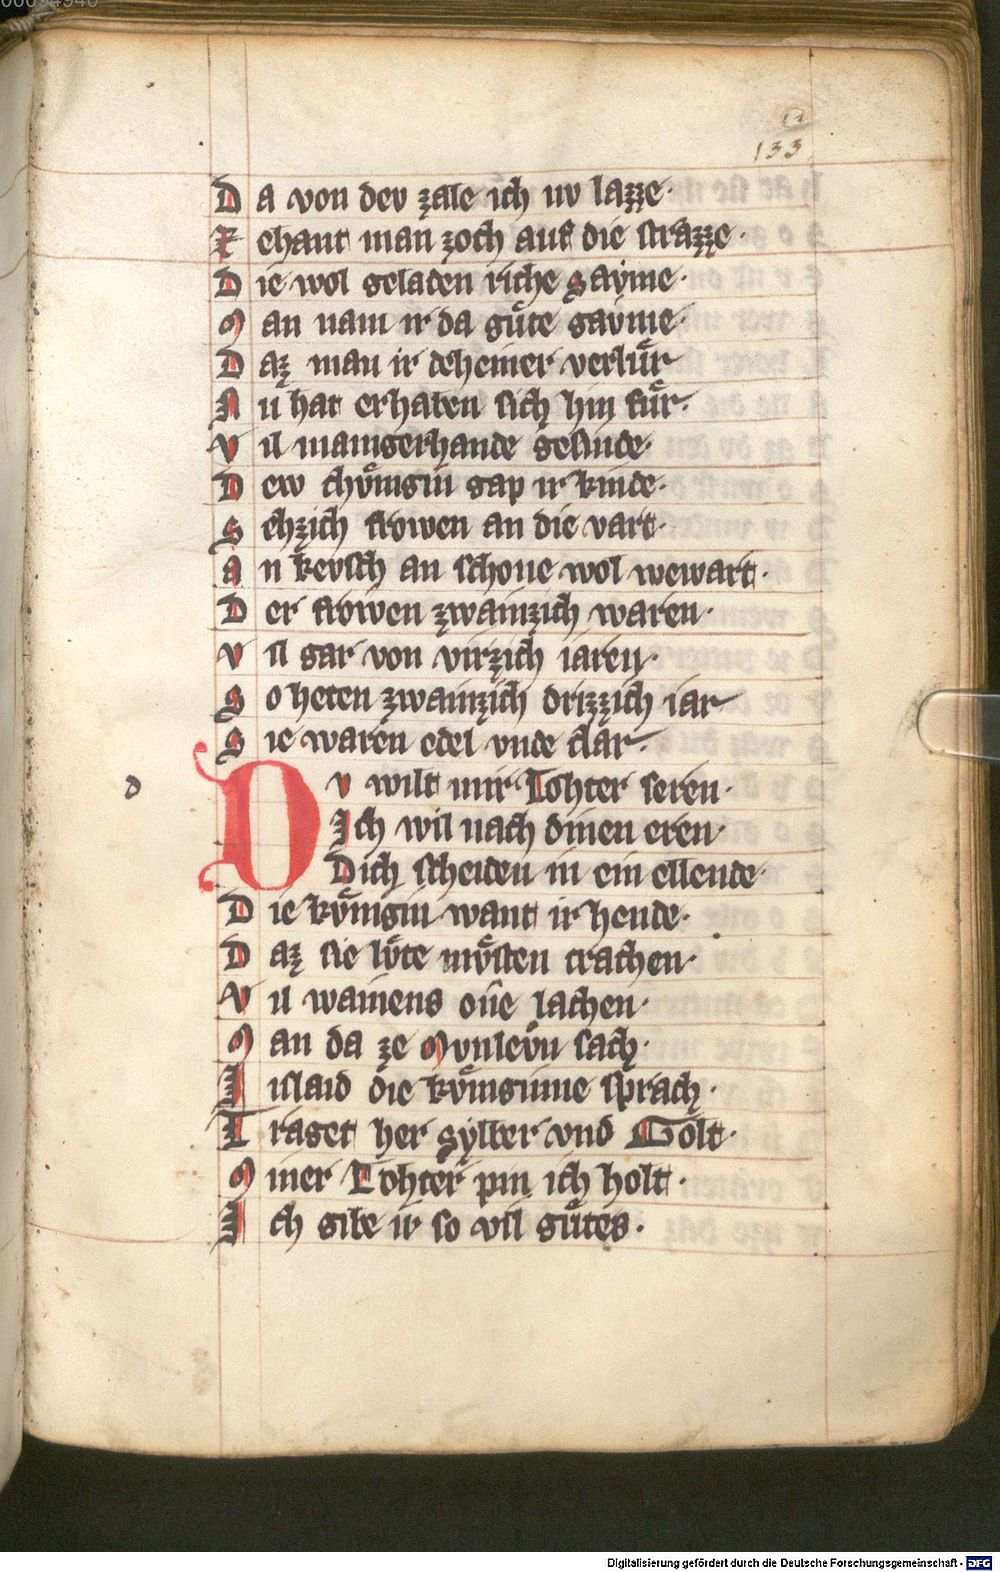 133
Da von dev zale ich nv lazze·
Zehant man zoch auf die strazze·
Die wol geladen riche sayme·
Man nam ir da gůte gavme·
Daz man ir deheiner verlůr
Nu hat erhaben sich hin fůr·
Vil manigerhande gesinde·
Dew chv̊nigin gap ir kinde·
Sehzich frowen an die vart·
An kevsch an schone wol wewart·
Der frowen zwainzich waren·
Vil gar von virzich iaren·
So heten zwainzich drizzich iar
Sie waren edel vnde clar·
d
Dv wilt mir Tohter seren·
Ich wil nach dinen eren·
Dich scheiden in ein ellende·
Die kv̊nigin want ir hende·
Daz sie lv̊te mv̊sten crachen·
Vil wainens one lachen·
Man da ze Mvnlevn sach·
Mislaid die kv̊niginne sprach·
Traget her sylber vnd Golt·
Miner Tohter pin ich holt·
Ich gibe ir so vil gůtes·
Digitalisierung gefördert durch die Deutsche Forschungsgemeinschaft - DFG